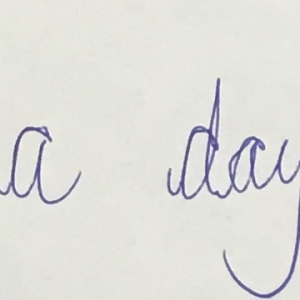 a day